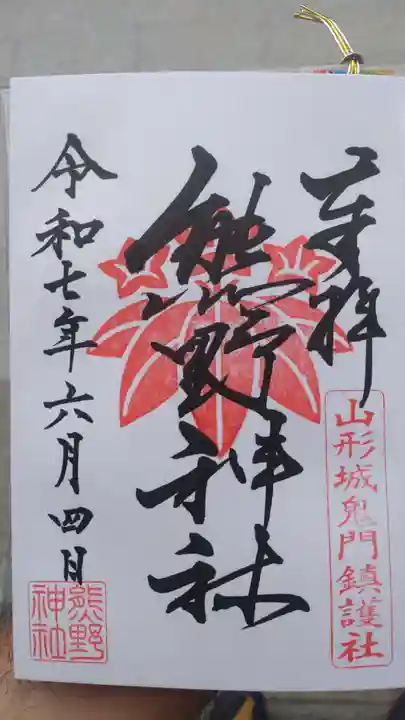 奉拝
山形城鬼門鎮護社
熊野神社
令和七年六月四日
熊野
神社